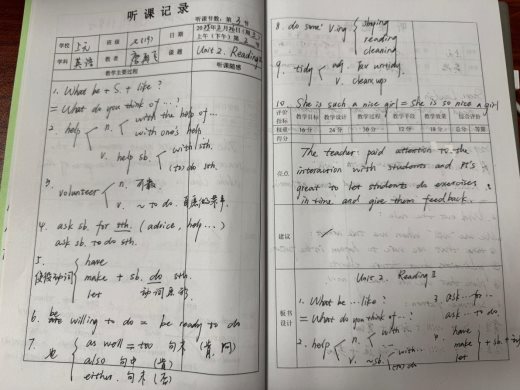 听课记录
听课节数：第2节
学校 上元 班级 日期
上午（下午）
学科 英语 教者 课题 Unit 2. Reading
教学主要过程 听课随感
1. What be + S. + like?
= What do you think of ...?
2. help n. with the help of ...
with one's help
v. help sb. with sth.
(to) do sth.
3. volunteer n. 可数
v. ~ to do
4. ask sb. for sth. (advice, help...)
ask sb. to do sth.
5. 使役动词 have
make + sb. do sth.
let 动词原形
6. be willing to do = be ready to do
7. 也 as well = too 句末 (肯, 问)
also 句中 (肯)
either. 句末 (否)
8. do some V.ing shopping
reading
cleaning
9. tidy adj. 反 untidy
v. clean up
10. She is such a nice girl = She is so nice a girl
评价指标 教学目标 教学设计 教学过程 教学手段 教学效果 综合评价
权重 16分 24分 30分 12分 18分 总分 等第
得分
亮点 The teacher paid attention to the
interaction with students and it's
great to let students do exercises
in time and give them feedback.
建议
板书设计 Unit 2. Reading II
1. What be ... like?
= What do you think of ...?
2. help n. with ...
v. ~sb. with...
(to) do
3. ask... for ...
ask ... to do
4. have
make + sb. +
let